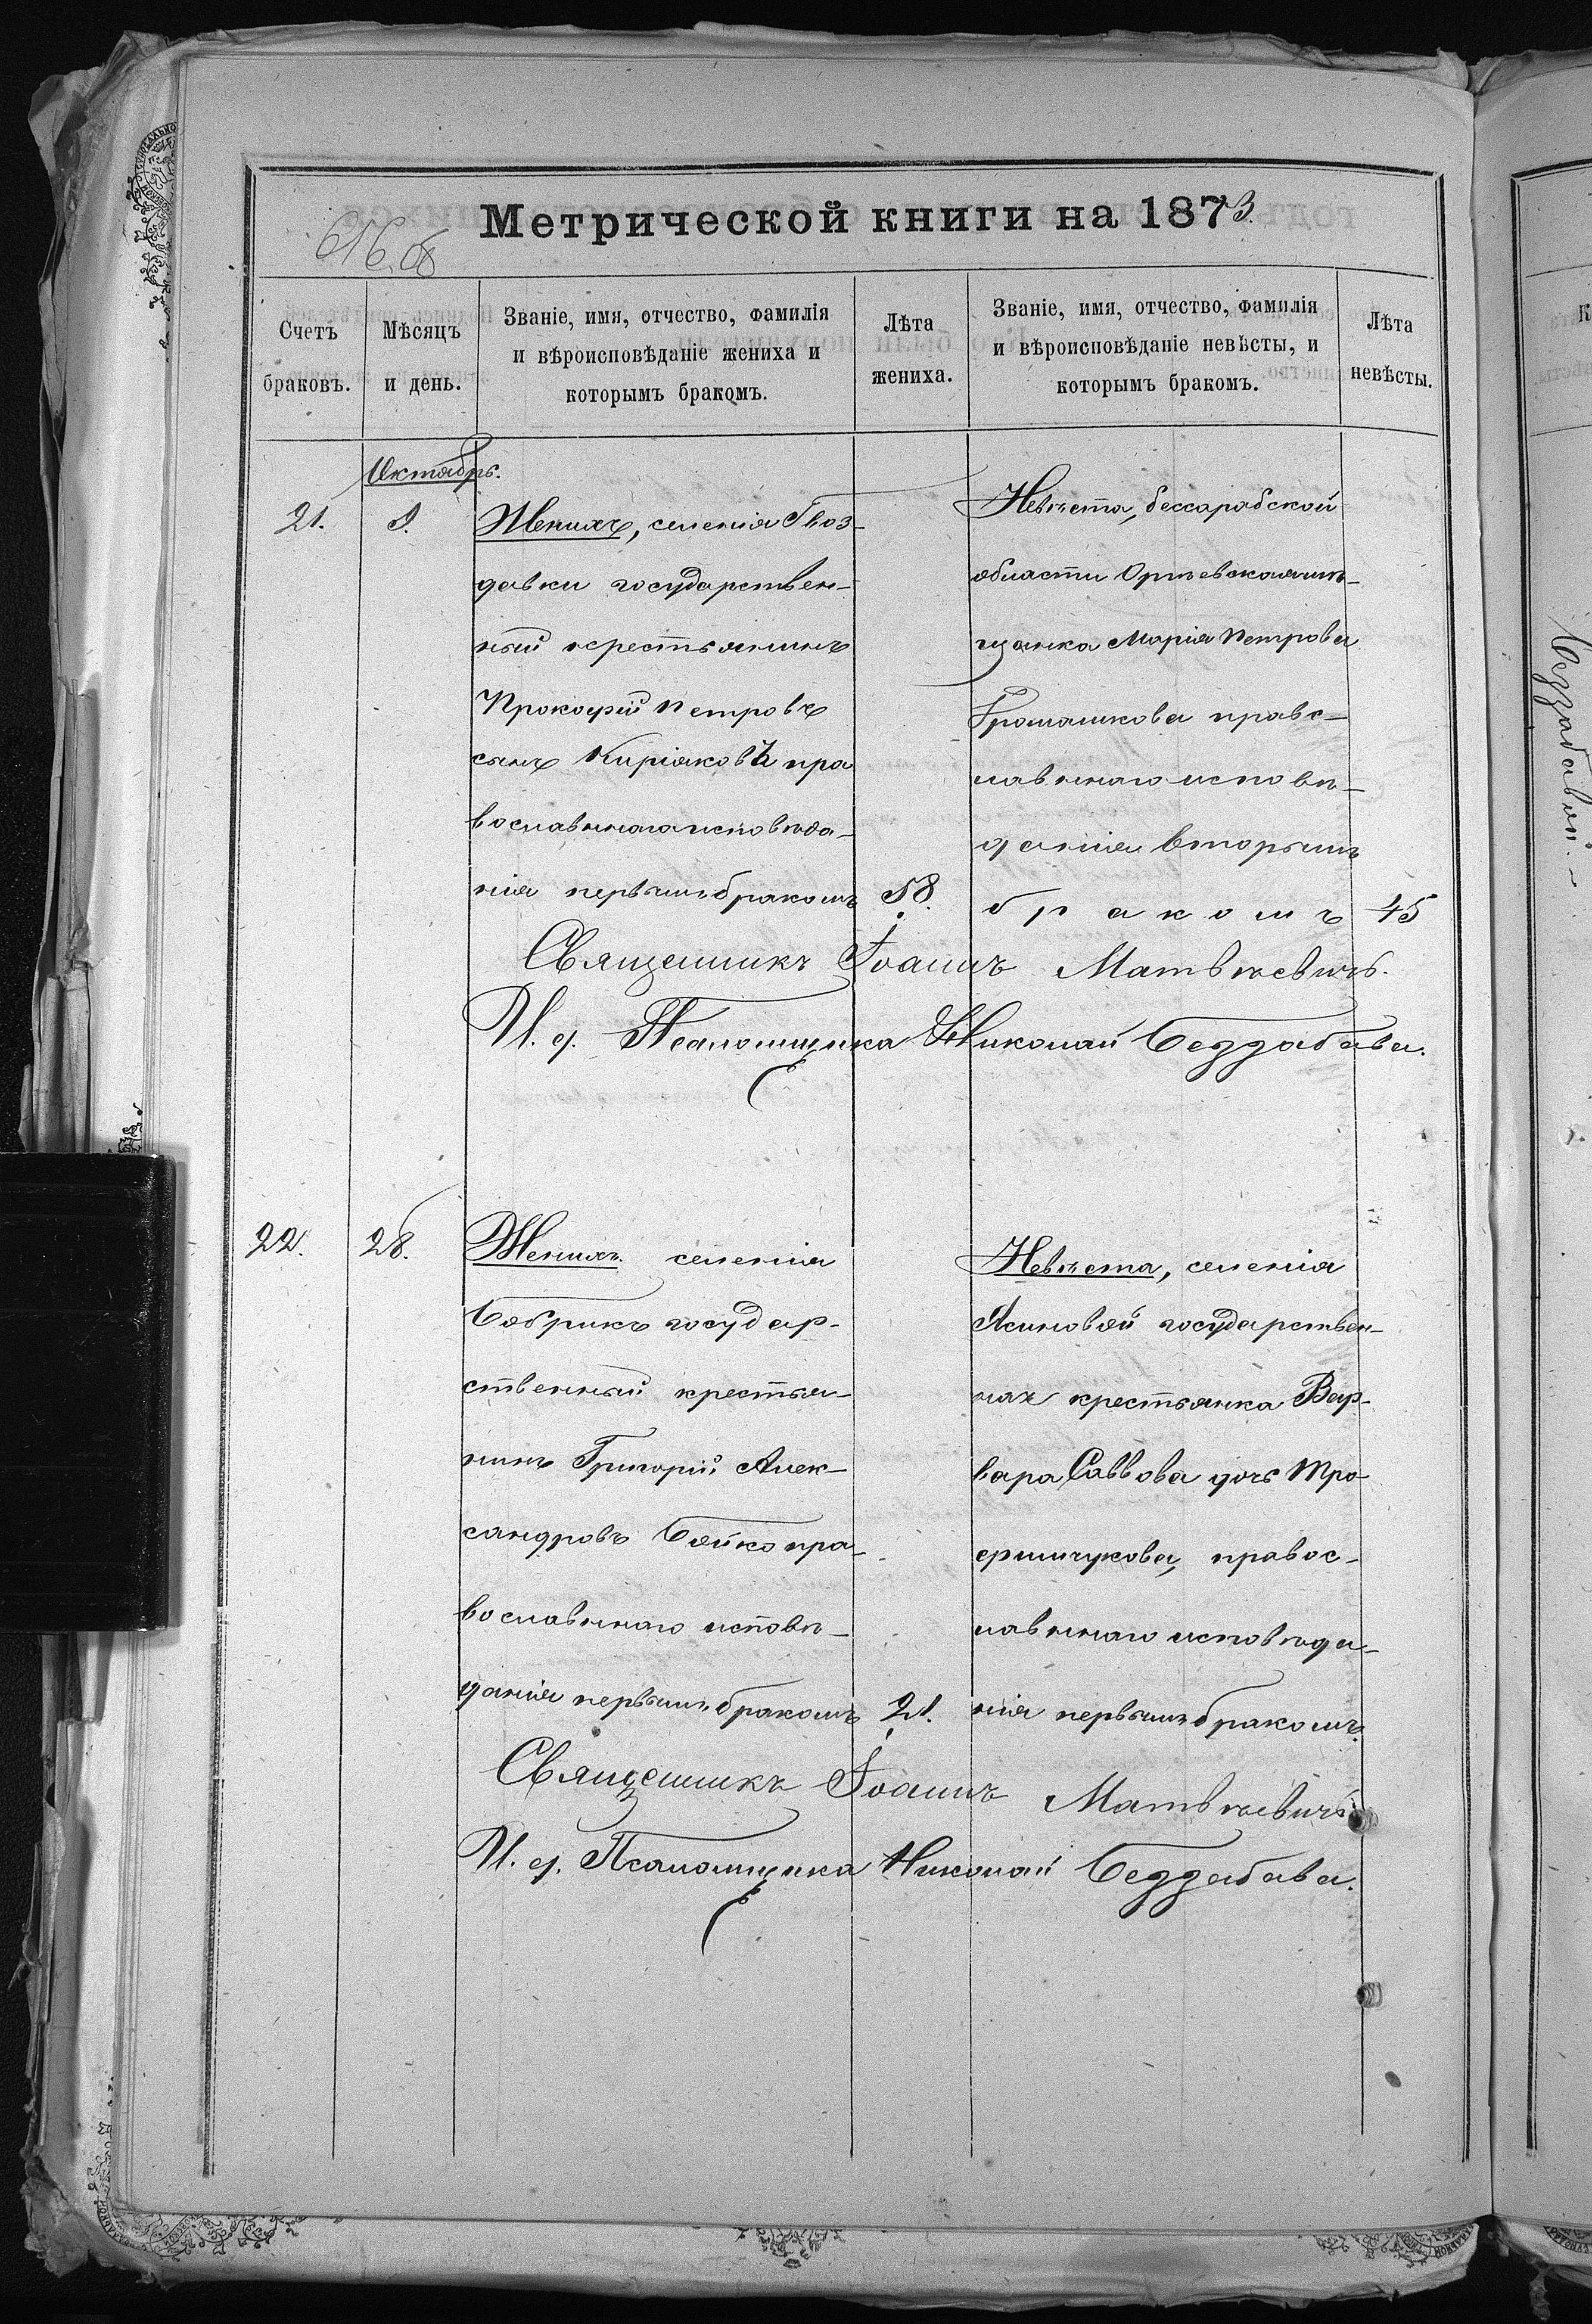 Метрической книги на 1873.
616.об
Счетъ браковъ.
Мѣсяцъ и день.
Званіе, имя, отчество, фамилія
и вѣроисповѣданіе жениха и
которымъ бракомъ.
Лѣта жениха.
Званіе, имя, отчество, фамилія
и вѣроисповѣданіе невѣсты, и
которымъ бракомъ.
Лѣта невѣсты.
Октябрь.
21.
Женихъ, селенія Гвоз-
давки государствен-
ный крестьянинъ
Прокофій Петровъ
сынъ Киріаковъ пра
вославнаго исповѣда-
нія первымъ бракомъ
58.
Невѣста, бессарабской
области Оргѣевская мѣ-
щанка Марія Петрова
Громашкова правс-
лавннаго исповѣ-
данія вторымъ
бракомъ
45
Священникъ Іоаннъ Матвѣевичъ.
И. д. Псаломщика Николай Беззабава.
22.
28.
Женихъ селенія
Бобрикъ государ-
ственный крестья-
нинъ Григорій Алек-
сандровъ Бойко пра-
вославннаго исповѣ-
данія первымъ бракомъ
21.
Невѣста, селенія
Ясиновой государствен-
ная крестьянка Вар-
вара Саввова дочь Тро-
фимчукова, правос-
лавннаго исповѣда-
нія первымъ бракомъ.
Священникъ Іоаннъ Матвѣевичъ
И. д. Псаломщика Николай Беззабава.
Беззабавой.